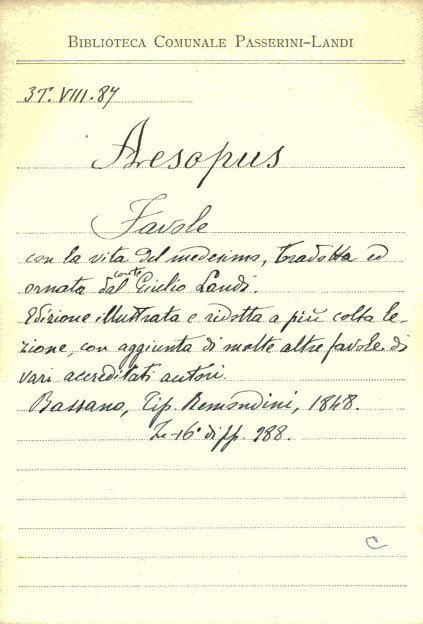 BIBLIOTECA COMUNALE PASSERINI-LANDI
3T.VIII.87
Aesopus
Favole
con la vita del medesimo, tradotta ed
ornata dal conte Giulio Landi.
Edizione illustrata e ridotta a più colta le-
zione, con aggiunta di molte altre favole di
vari accreditati autori.
Bassano, Tip. Remondini, 1848.
In-16° di pp. 288.
C